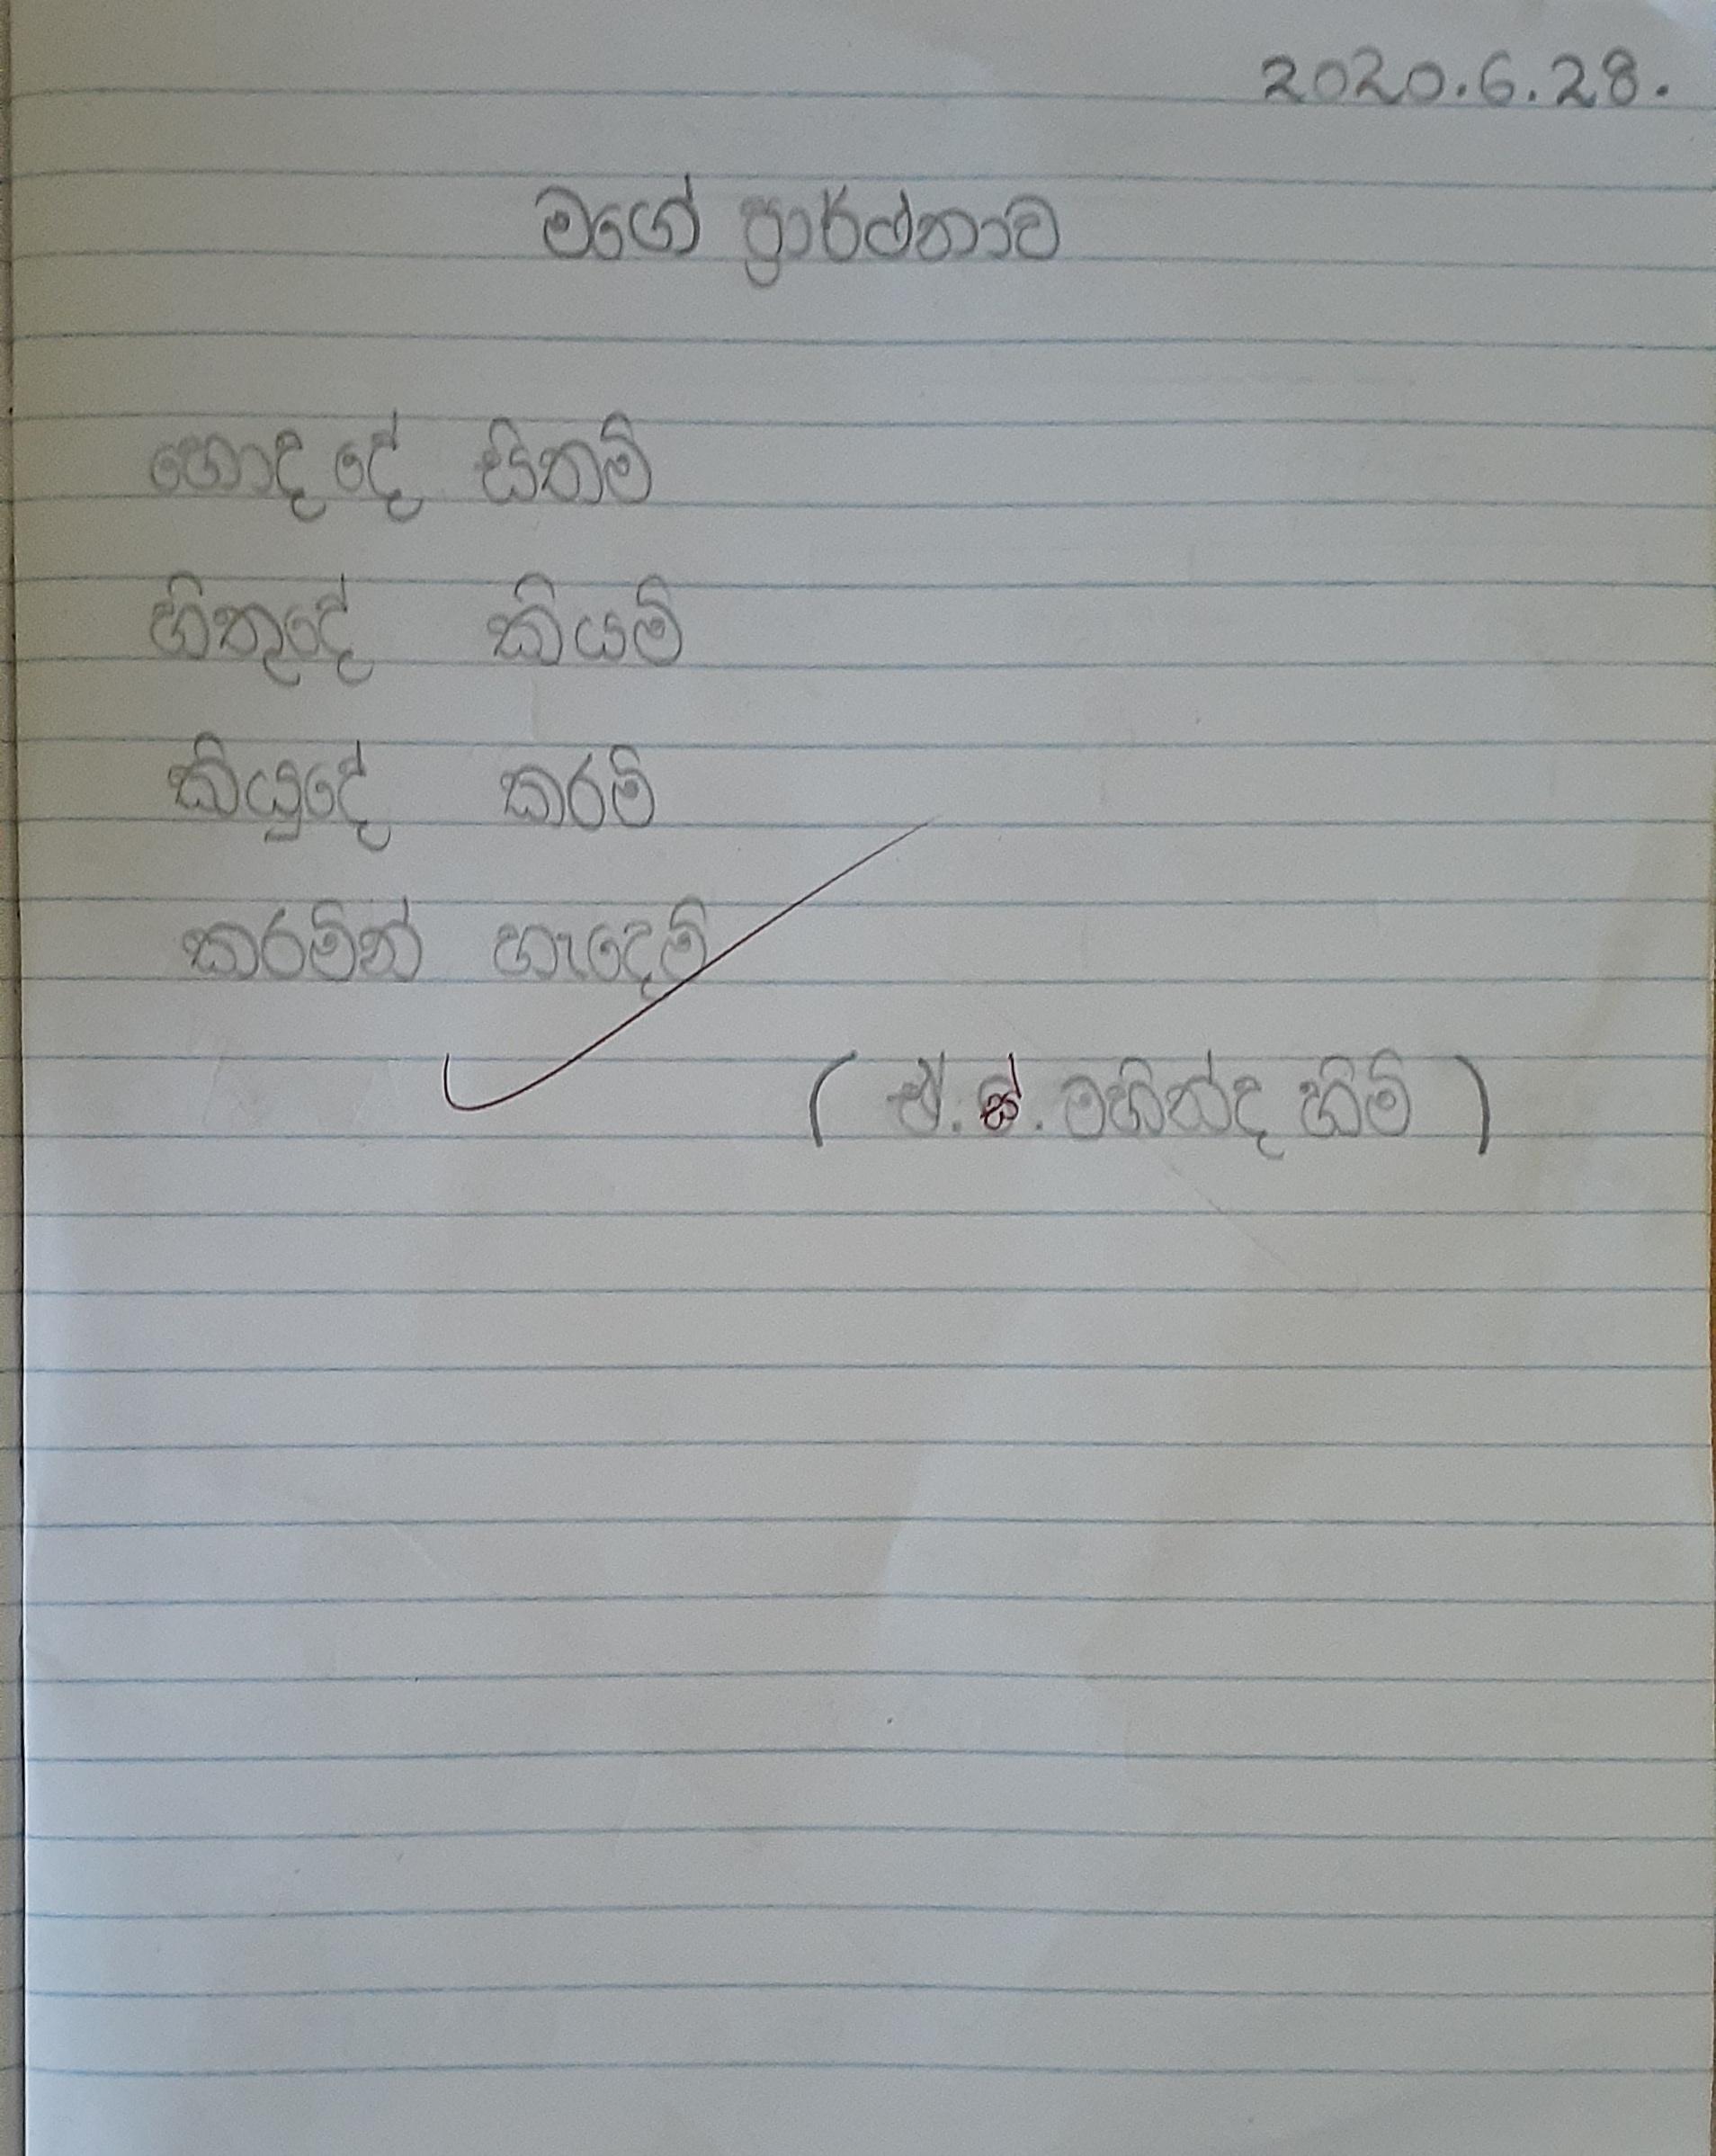 2020.6.28.
මගේ ප්‍රාර්ථනාව
හොද දේ සිතමි
හිතූදේ කියමි
කියූදේ කරමි
කරමින් හැදෙමි
( ඒ. ස්. මහින්ද හිමි )